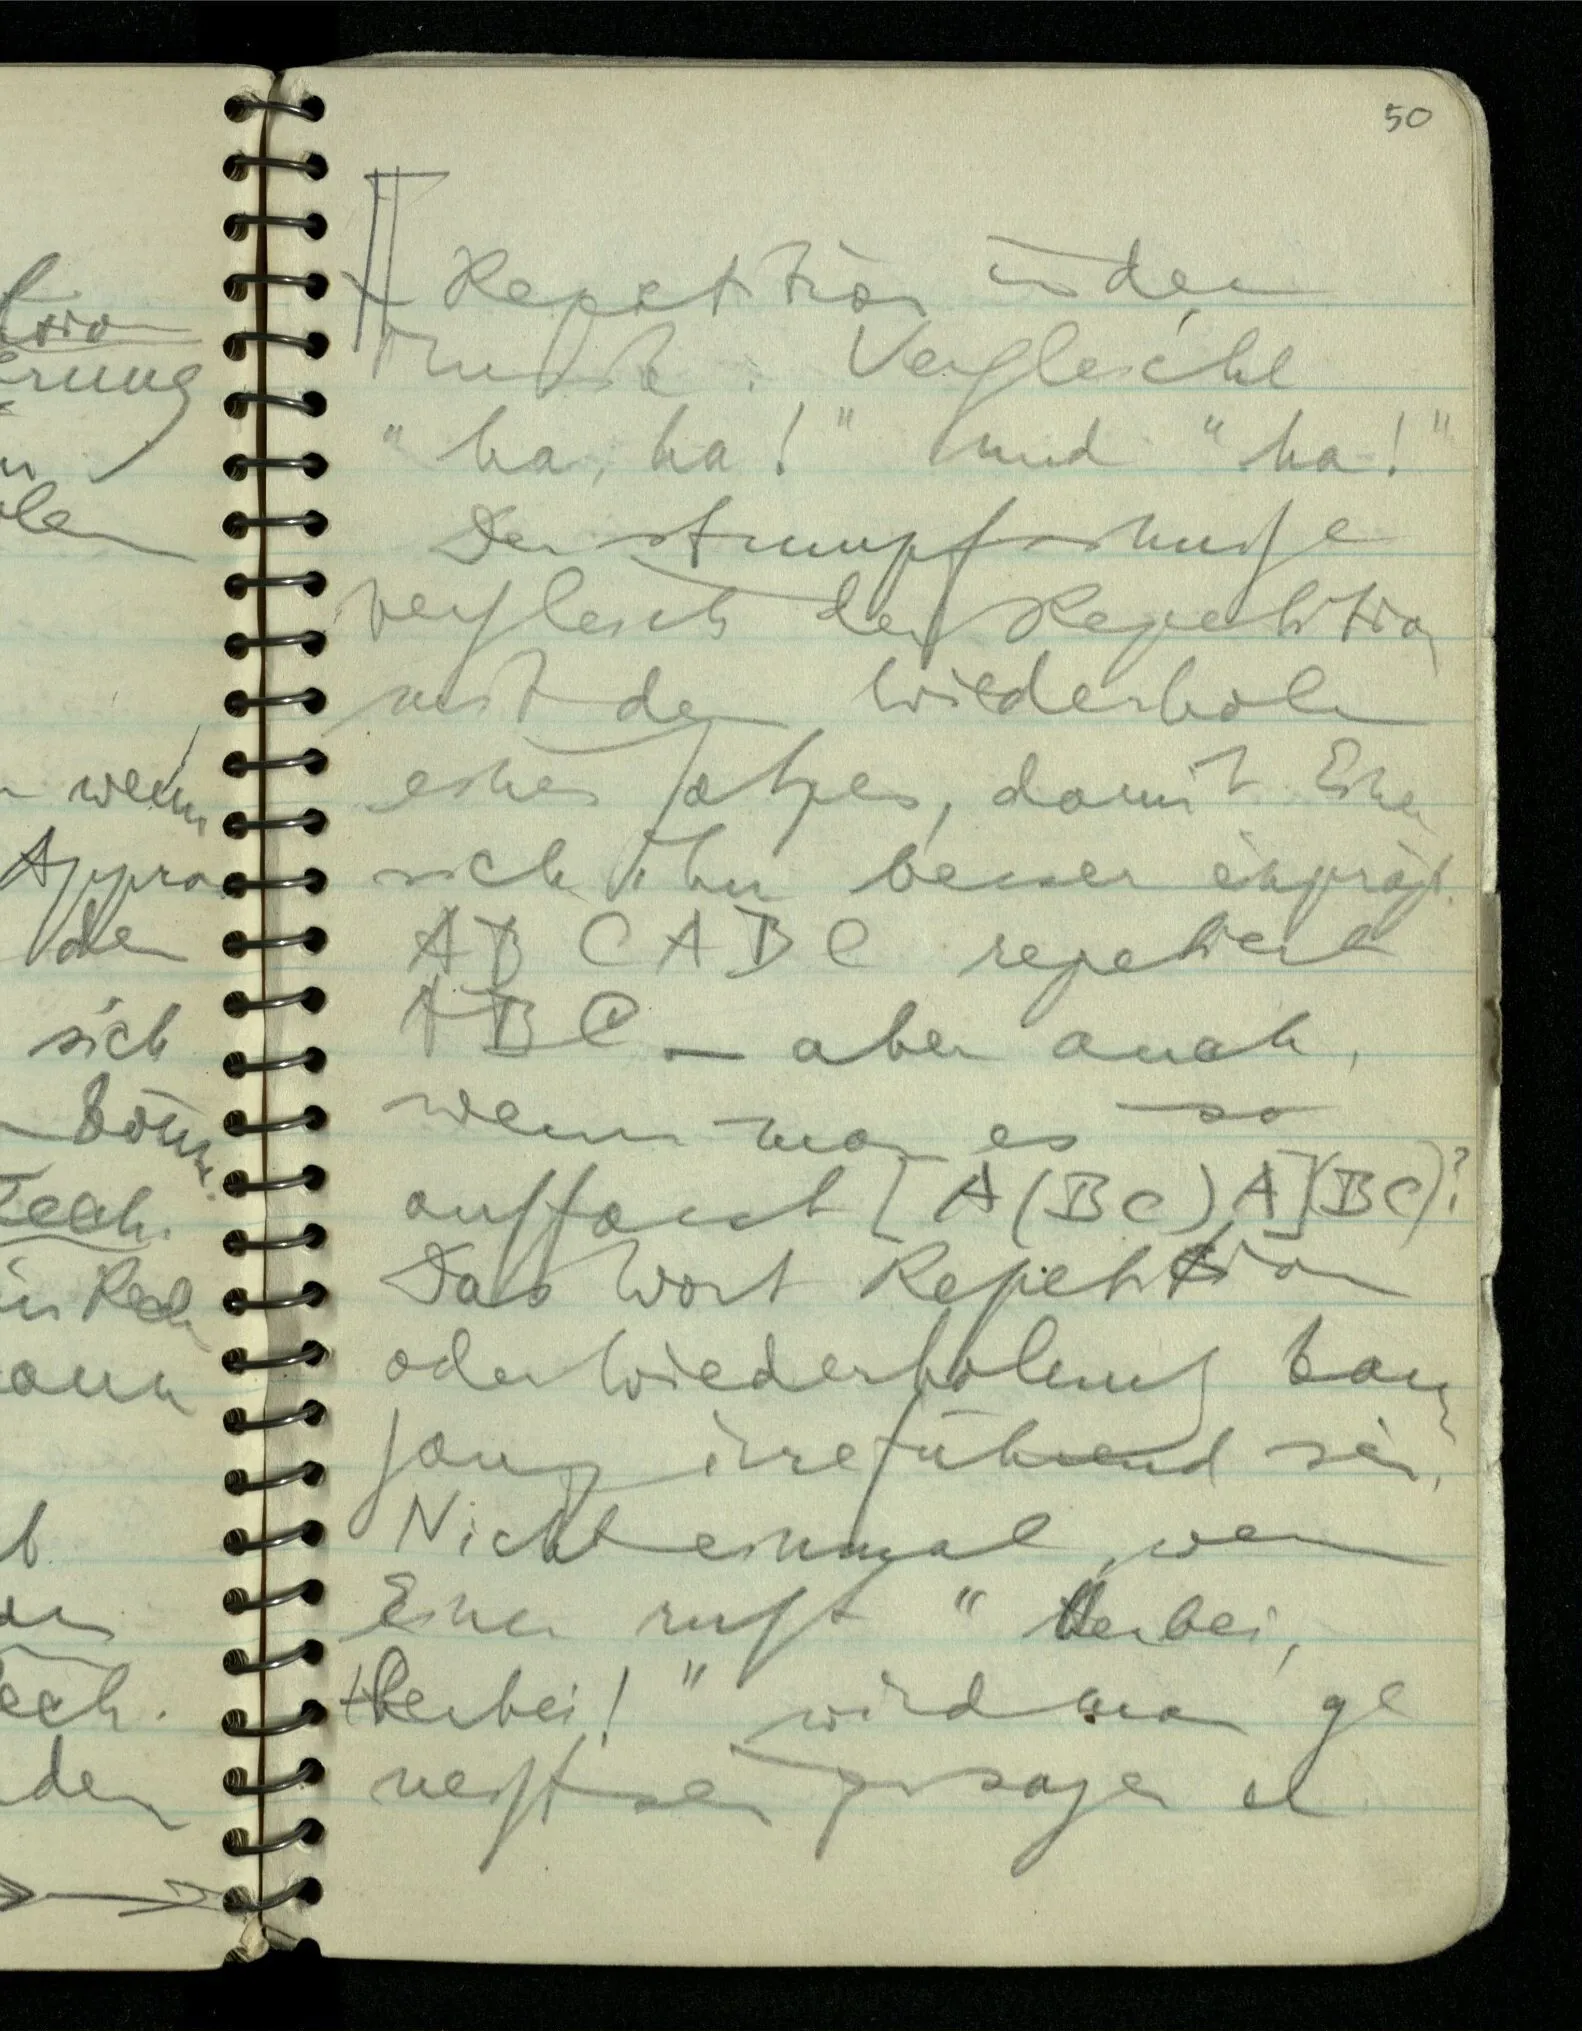 50
Repetition in der
Musik: Vergleiche
"ha, ha!" und "ha!"
Der stumpfsinnige
Vergleich der Repetition
mit dem Wiederholen
eines Satzes, damit Einer
sich ihn besser einprägt.
A B C A B C repetiert
A B C – aber auch,
wenn man es so
auffasst [A(BC)A](BC)?
Das Wort Repetition
oder Wiederholung kann
ganz irreführend sein.
Nicht einmal, wenn
Einer ruft "Herbei,
Herbei!" wird man ge
neigt sein zu sagen er
tion
erung
n
olen
wenn
Appro
den
sich
könn
Rech.
in Rech
ann
b
Rech.
den